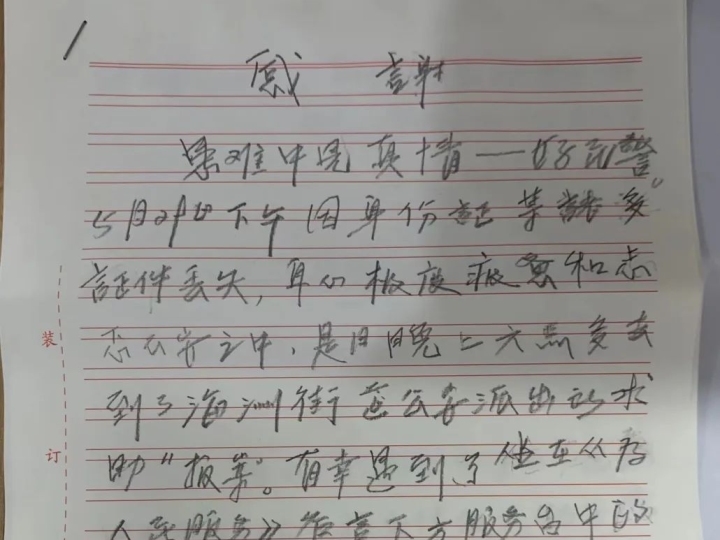 感 謝
患难中见真情——好民警。
5月21日下午因身份証等諸多
証件丢失，身心极度疲惫和忐
忑不安之中，是日晚上六点多来
到了海洲街道公安派出所求
助“报案”。有幸遇到了坐在从为
人民服务》 下方服务台中的
装
订